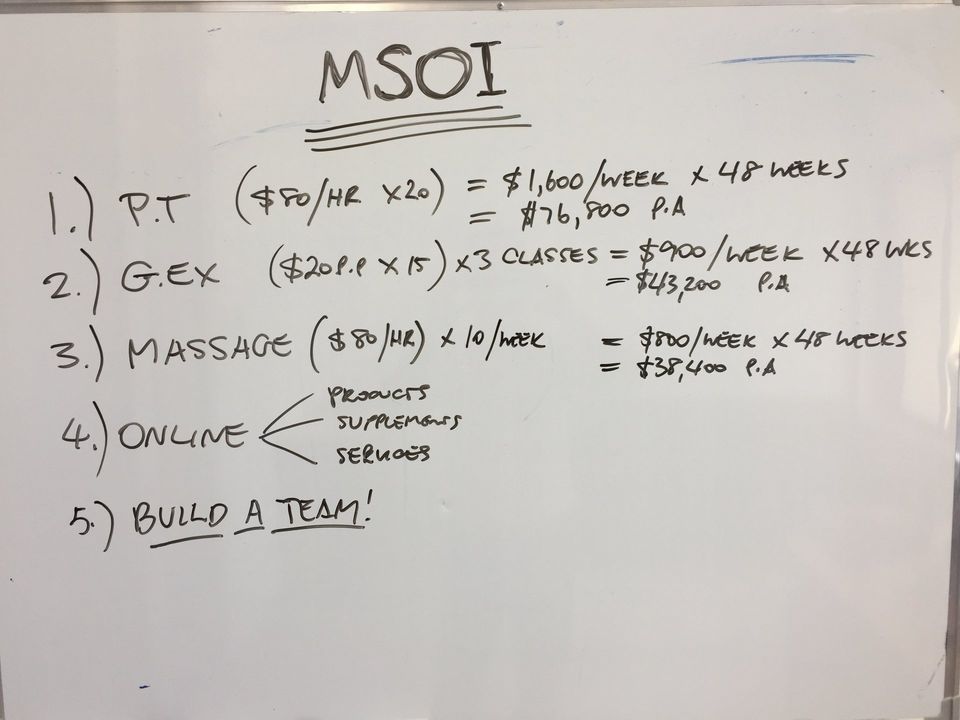 MSOI
1.) P.T ($80/HR X20) = $1,600/WEEK X 48 WEEKS
= $76,800 P.A
2.) G.EX ($20P.P X 15) X3 CLASSES = $900/WEEK X48 WKS
= $43,200 P.A
3.) MASSAGE ($80/HR) X 10/WEEK = $800/WEEK X 48 WEEKS
= $38,400 P.A
PRODUCTS
4.) ONLINE SUPPLEMENTS
SERVICES
5.) BUILD A TEAM!